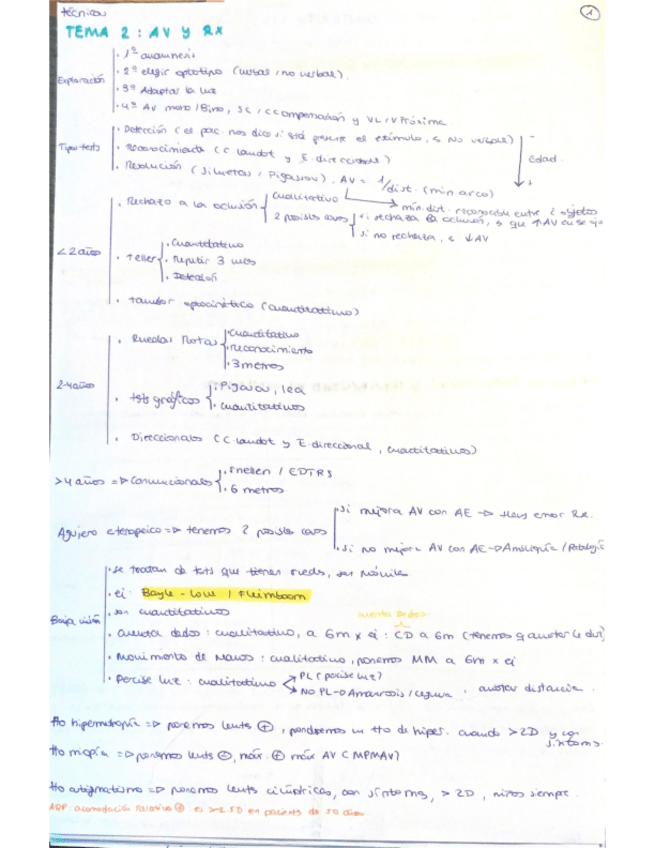 técnicas
1
TEMA 2: AV y RX
Exploración
· 1º anamnesis
· 2º elegir optotipo (verbal / no verbal).
· 3º Adaptar la luz
· 4º AV mono / Bino, SC / CC compensación y VL / V Próxima
Tipos tests
· Detección (el pac. nos dice si está presente el estímulo, es No verbal)
· Reconocimiento (C Landot y E. direccional)
· Resolución (siluetas / Pigassou). AV = 1/dist. (min arco)
Edad
mín. dist. reconocible entre 2 objetos
< 2 años
· Rechazo a la oclusión
Cualitativo
2 posibles casos
si rechaza la oclusión, es que ↑AV en ese ojo
si no rechaza, es ↓AV
· Teller
· Cuantitativo
· Repetir 3 veces
· Detección
· tambor optocinético (cuantitativo)
2-4 años
· Ruedas Rotas
· Cuantitativo
· reconocimiento
· 3 metros
· tests gráficos
· Pigassou, lea
· cuantitativos
· Direccionales (C Landot y E direccional, cuantitativos)
> 4 años => Convencionales
· Snellen / EDTRS
· 6 metros
Agujero estenopeico => tenemos 2 posibles casos
si mejora AV con AE -> Hay error Rx.
si no mejora AV con AE -> Ambliopía / Patología
Baja visión
· se tratan de tests que tienen ruedas, son móviles
· ej: Bayle - Low / Fleimboom
· son cuantitativos
cuenta dedos
· contar dedos: cualitativo, a 6m x ej: CD a 6m (tenemos q anotar la dist)
· Movimiento de Manos: cualitativo, ponemos MM a 6m x ej
· Percibe luz: cualitativo
PL (percibe luz)
No PL -> Amaurosis / ceguera. anotar distancia.
tto hipermetropía => ponemos lents ⊕, pondremos un tto de hiper. cuando > 2D y con síntomas.
tto miopía => ponemos lents ⊖, máx. ⊕ máx AV (MPMAV)
tto astigmatismo => ponemos lents cilíndricas, con síntomas, > 2D, niños siempre.
ARP: acomodación relativa ⊕: es > 2.5D en pacients de 30 años.